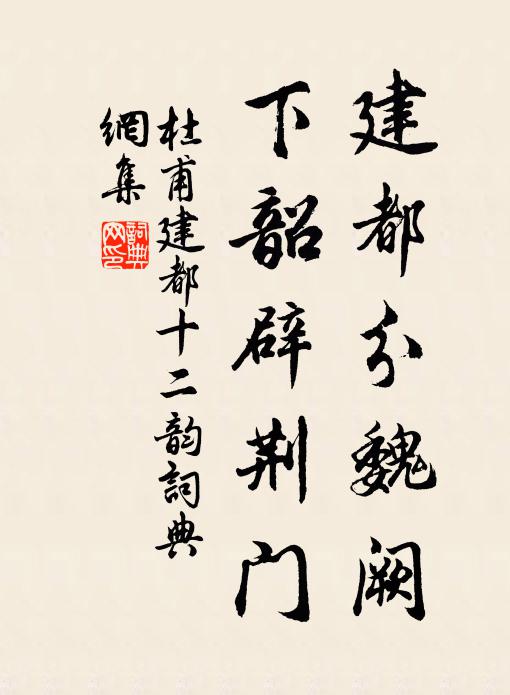 建都分魏阙
下韶辟荆门
杜甫建都十二韵詞典
網集
詞典
网印